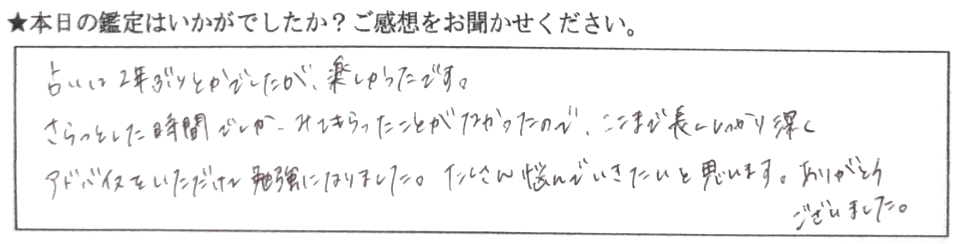 ★本日の鑑定はいかがでしたか？ご感想をお聞かせください。
占いは2年ぶりとかでしたが、楽しかったです。
さらっとした時間でしか、みてもらったことがなかったので、ここまで長くしっかり深く
アドバイスをいただけて勉強になりました。たくさん悩んでいきたいと思います。ありがとう
ございました。